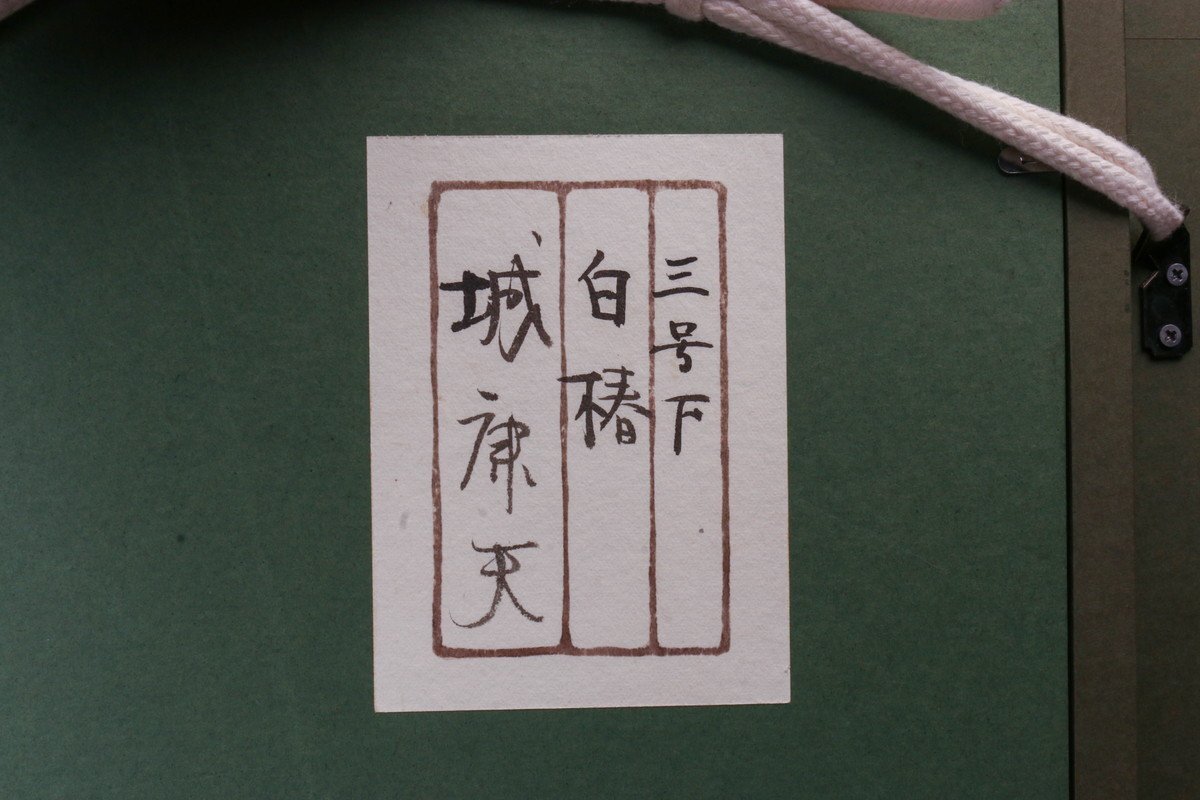 三号下
白椿
城康夫